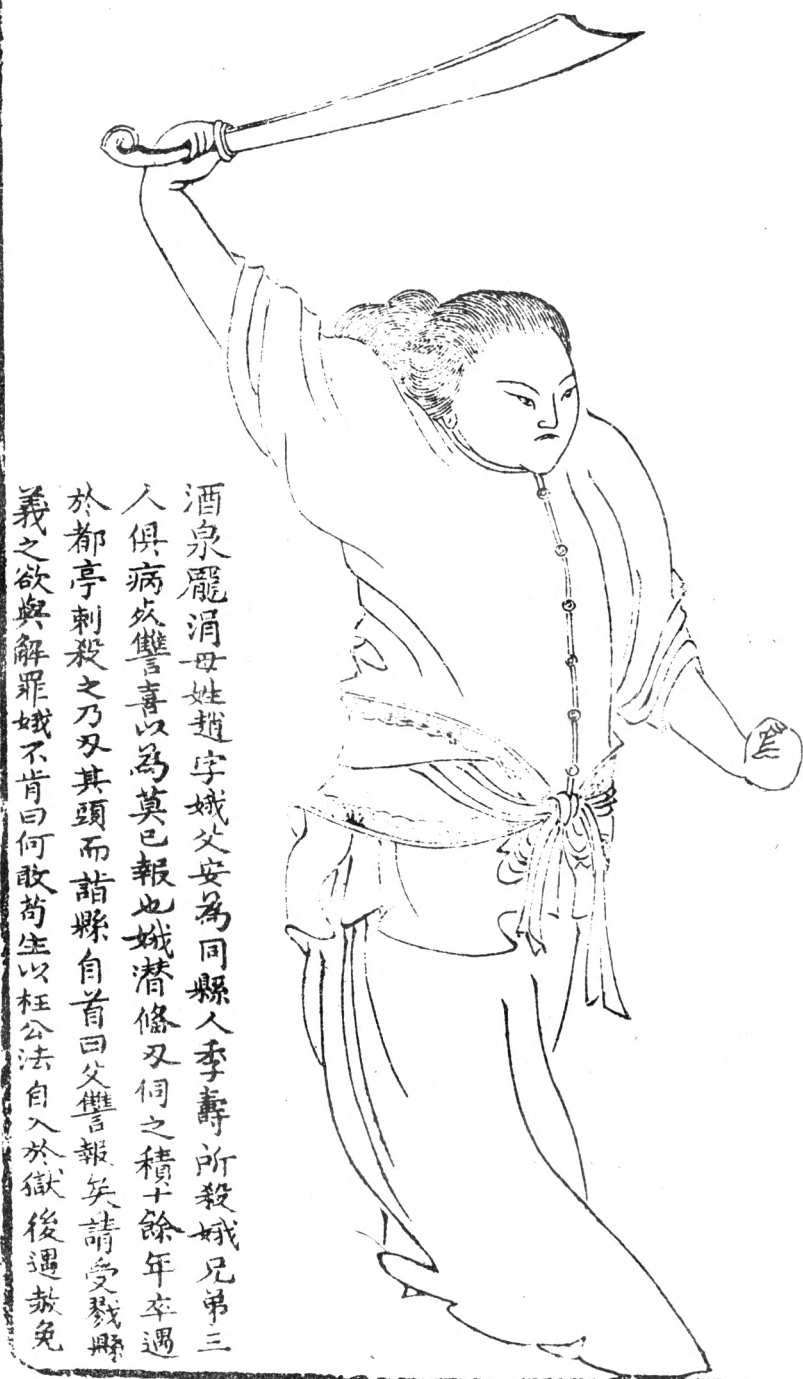 酒泉龎涓母姓趙字娥父安為同縣人李壽所殺娥兄弟三
人俱病死讐喜以為莫已報也娥潜俻刃伺之積十餘年卒遇
於都亭刺殺之乃刃其頭而詣縣自首曰父讐報矣請受戮縣
義之欲與解罪娥不肯曰何敢苟生以枉公法自入於獄後遇赦免